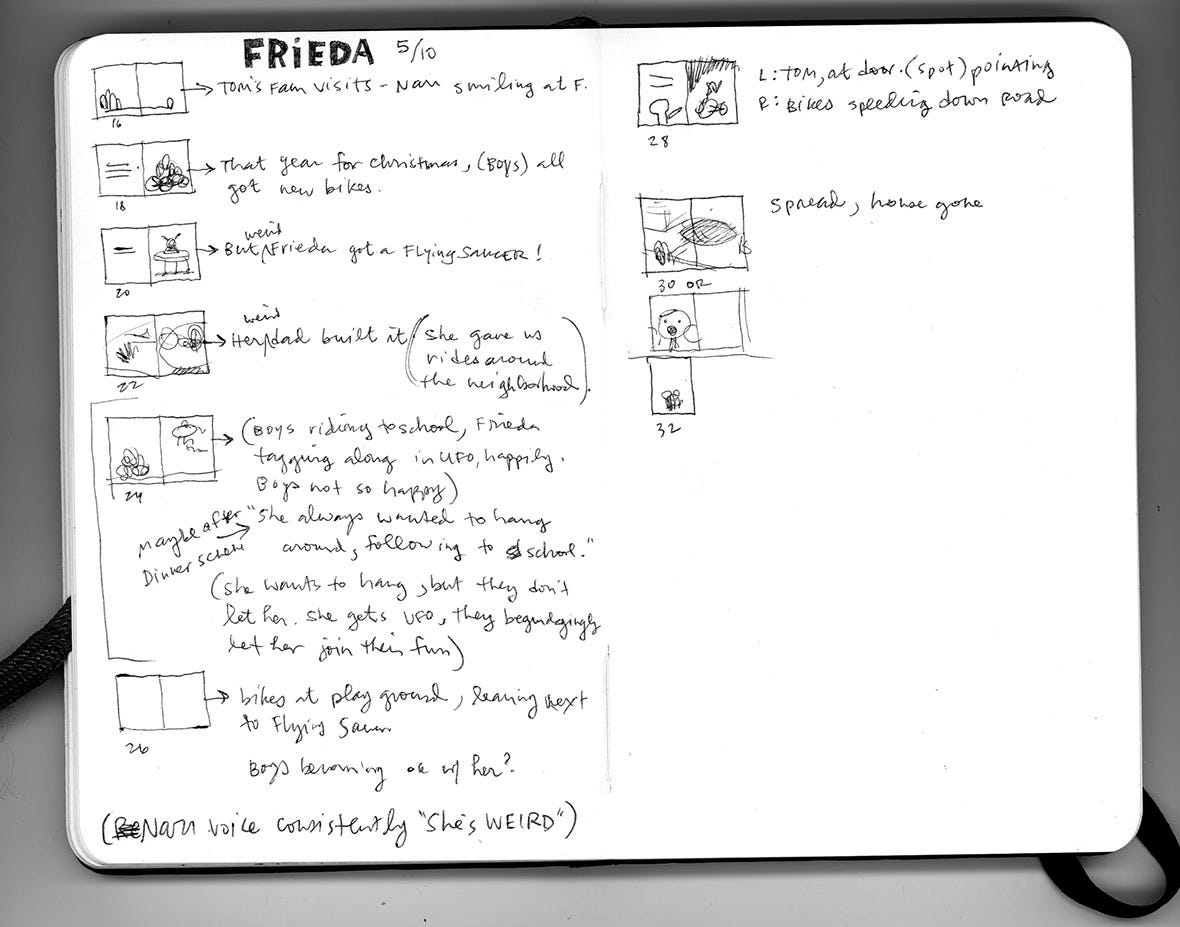 FRiEDA 5/10
Tom's Fam visits - Narr smiling at F.
16
That year for christmas, (Boys) all
got new bikes.
18
weird
But, Frieda got a FLYING SAUCER!
20
weird
Her dad built it (she gave us
rides around
the neighborhood).
22
(Boys riding to school, Frieda
tagging along in UFO, happily.
Boys not so happy)
24
maybe after
Dinner scene
"she always wanted to hang
around, following to school."
(she wants to hang, but they don't
let her. She gets UFO, they begrudgingly
let her join their fun)
bikes at play ground, leaning next
to Flying Saucer
26
Boys becoming ok w/ her?
(Narr voice consistently "She's WEIRD")
L: TOM, at door. (spot) pointing
R: Bikes speeding down road
28
Spread, house gone
30 OR
32